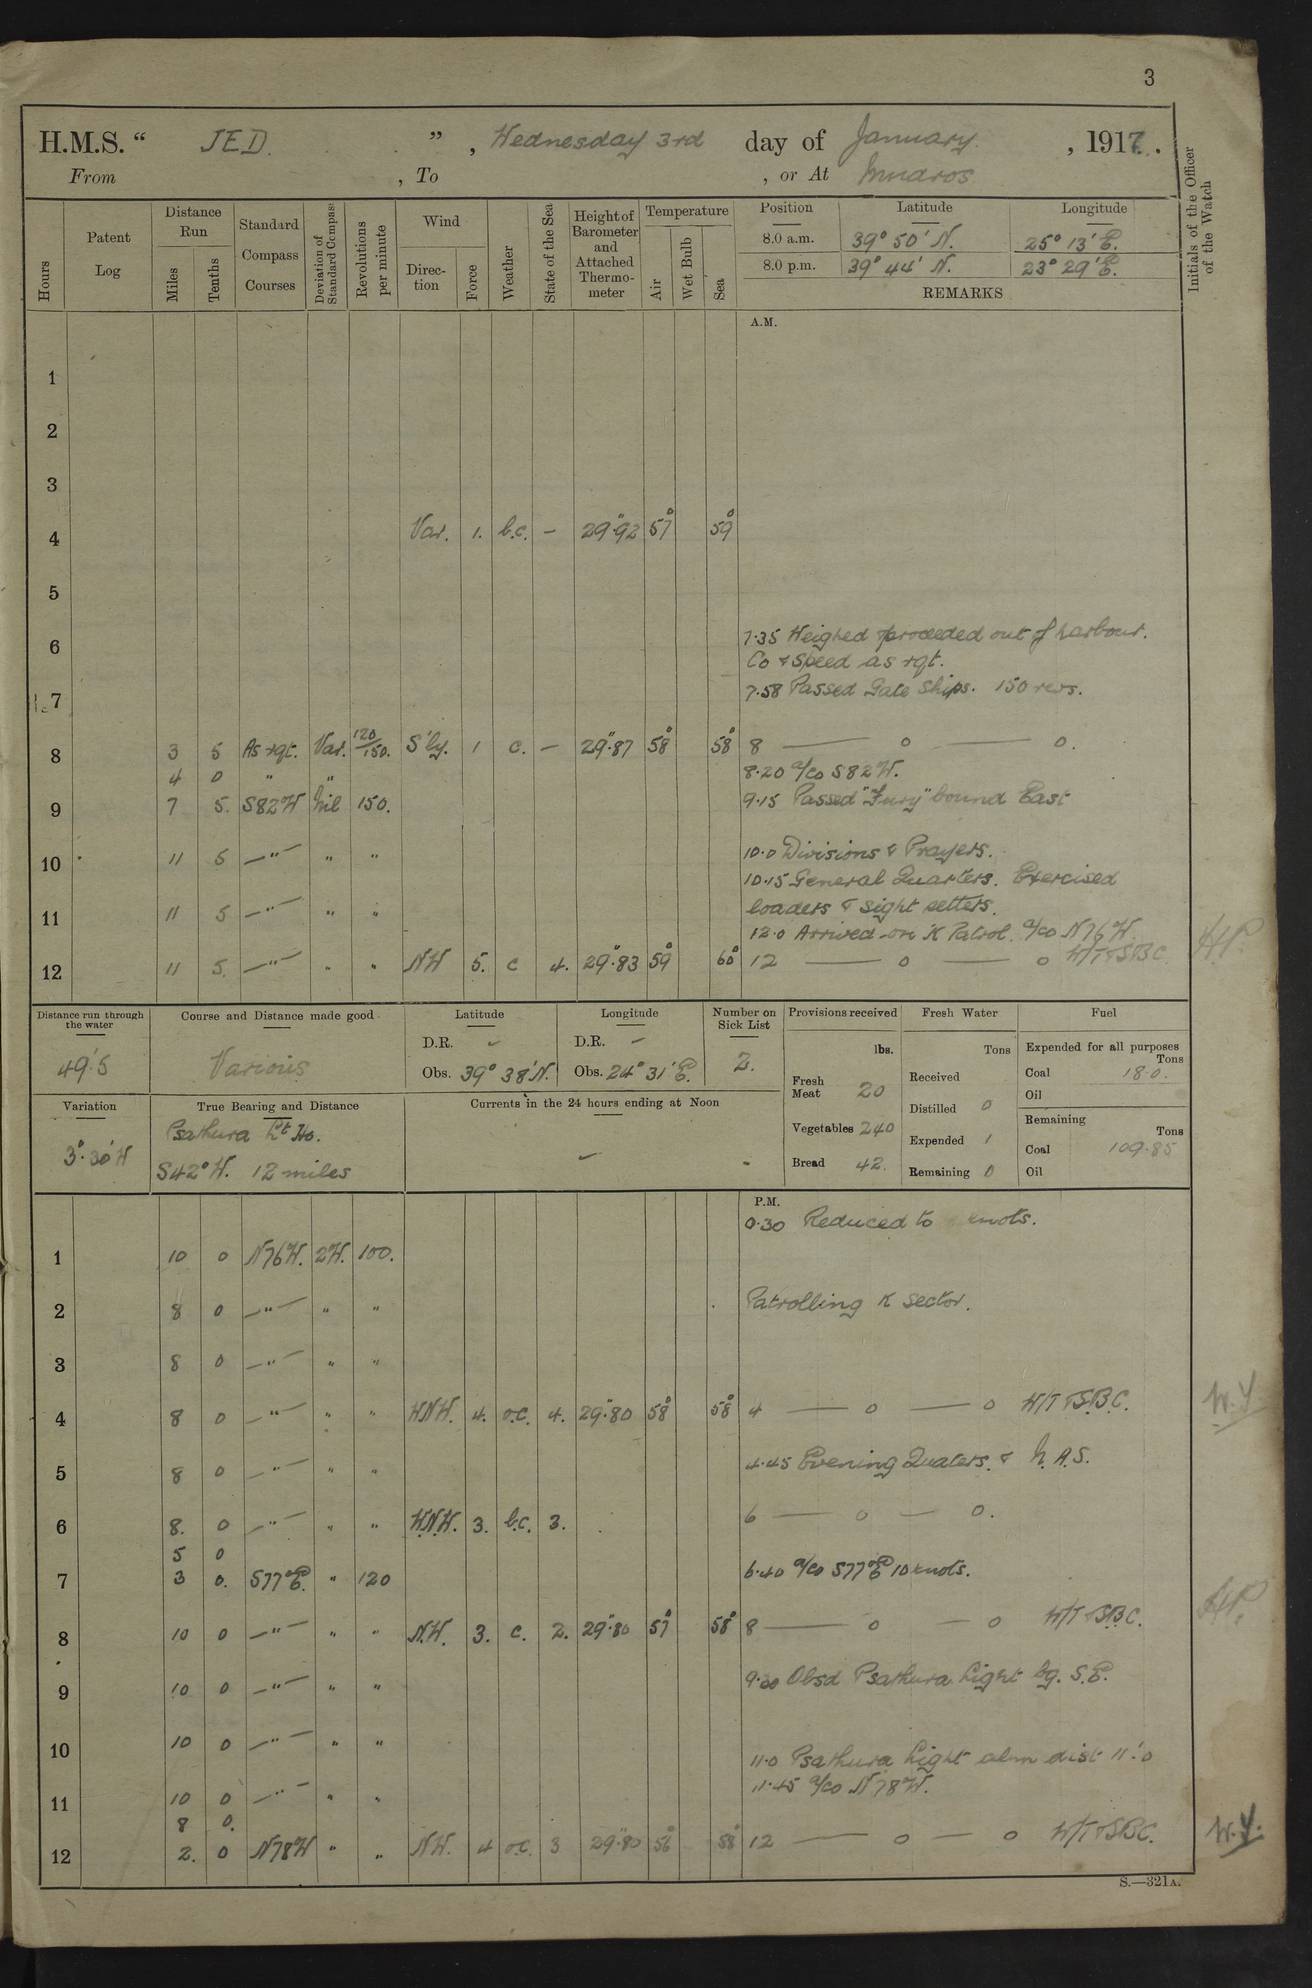 3
H.M.S. “ JED. ” , Wednesday 3rd day of January , 1917.
From , To , or At Mudros
Hours
Patent Log
Distance Run
Miles
Tenths
Standard Compass Courses
Deviation of Standard Compass
Revolutions per minute
Wind
Direc-tion
Force
Weather
State of the Sea
Height of Barometer and Attached Thermo-meter
Temperature
Air
Wet Bulb
Sea
Position Latitude Longitude
8.0 a.m. 39° 50' N. 25° 13' E.
8.0 p.m. 39° 44' N. 23° 29' E.
REMARKS
Initials of the Officer of the Watch
A.M.
1
2
3
4 Var. 1. b.c. — 29".92 57° 59°
5
7.35 Weighed & proceeded out of harbour.
6
Co & Speed as rqt.
7.58 Passed Gate Ships. 150 revs.
7
8 3 5 As rqt. Var. 120/150. S'ly. 1 c. — 29".87 58° 58° 8 — o — o.
4 0 " " 8.20 a/co S82W.
9 7 5. S82W Nil 150. 9.15 Passed "Fury" bound East
10 11 5 —"— " " 10.0 Divisions & Prayers.
10.15 General Quarters. Exercised
11 11 5 —"— " " loaders & sight setters.
12.0 Arrived on K Patrol. a/co N76W.
12 11 5. —"— " " NW 5. c 4. 29".83 59° 60° 12 — o — o W/T & SBC. HP.
Distance run through the water
49'.5
Course and Distance made good
Various
Latitude
D.R. -
Obs. 39° 38' N.
Longitude
D.R. -
Obs. 24° 31' E.
Number on Sick List
2.
Provisions received
lbs.
Fresh Meat 20
Vegetables 240
Bread 42.
Fresh Water
Tons
Received
Distilled 0
Expended 1
Remaining 0
Fuel
Expended for all purposes
Tons
Coal 18.0.
Oil
Remaining
Tons
Coal 109.85
Oil
Variation
3°.30' W
True Bearing and Distance
Psathura Lt Ho.
S42°W. 12 miles
Currents in the 24 hours ending at Noon
-
P.M.
0.30 Reduced to knots.
1 10 0 N76W. 2W. 100.
2 8 0 —"— " " Patrolling K sector.
3 8 0 —"— " "
4 8 0 —"— " " WNW. 4. o.c. 4. 29".80 58° 58° 4 — o — o W/T & S.B.C. W.Y.
5 8 0 —"— " " 4.45 Evening Quaters. & N.A.S.
6 8. 0 —"— " " W.N.W. 3. b.c. 3. 6 — o — o.
5 0
7 3 0. S77°E. " 120 6.40 a/co S77°E 10 knots.
8 10 0 —"— " " N.W. 3. c. 2. 29".80 57° 58° 8 — o — o W/T & S.B.C. HP.
9 10 0 —"— " " 9.20 Obsd Psathura Light bg. S.E.
10 10 0 —"— " "
11.0 Psathura Light abm dist 11'.0
11 10 0 —"— " " 11.45 a/co N78W.
8 0.
12 2. 0 N78W " " NW. 4 o.c. 3 29".80 56° 58° 12 — o — o W/T & SBC. W.Y.
S.—321A.